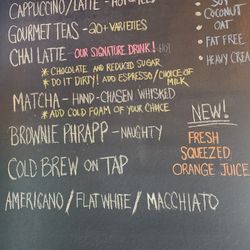 CAPPUCCINO/LATTE - HOT &
GOURMET TEAS - 20+ VARIETIES
CHAI LATTE - OUR SIGNATURE DRINK! HOT
* CHOCOLATE AND REDUCED SUGAR
* DO IT DIRTY! ADD ESPRESSO/CHOICE OF MILK
MATCHA - HAND-CHASEN WHISKED
* ADD COLD FOAM OF YOUR CHOICE
BROWNIE PHRAPP - NAUGHTY
COLD BREW ON TAP
AMERICANO/FLAT WHITE/MACCHIATO
SOY
COCONUT
OAT
FAT FREE
HEAVY CREA
NEW!
FRESH
SQUEEZED
ORANGE JUICE